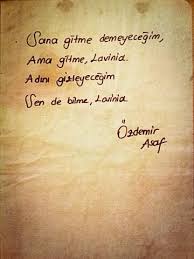 Sana gitme demeyeceğim,
Ama gitme, Lavinia.
Adını gizleyeceğim
Sen de bilme, Lavinia.
Özdemir
Asaf